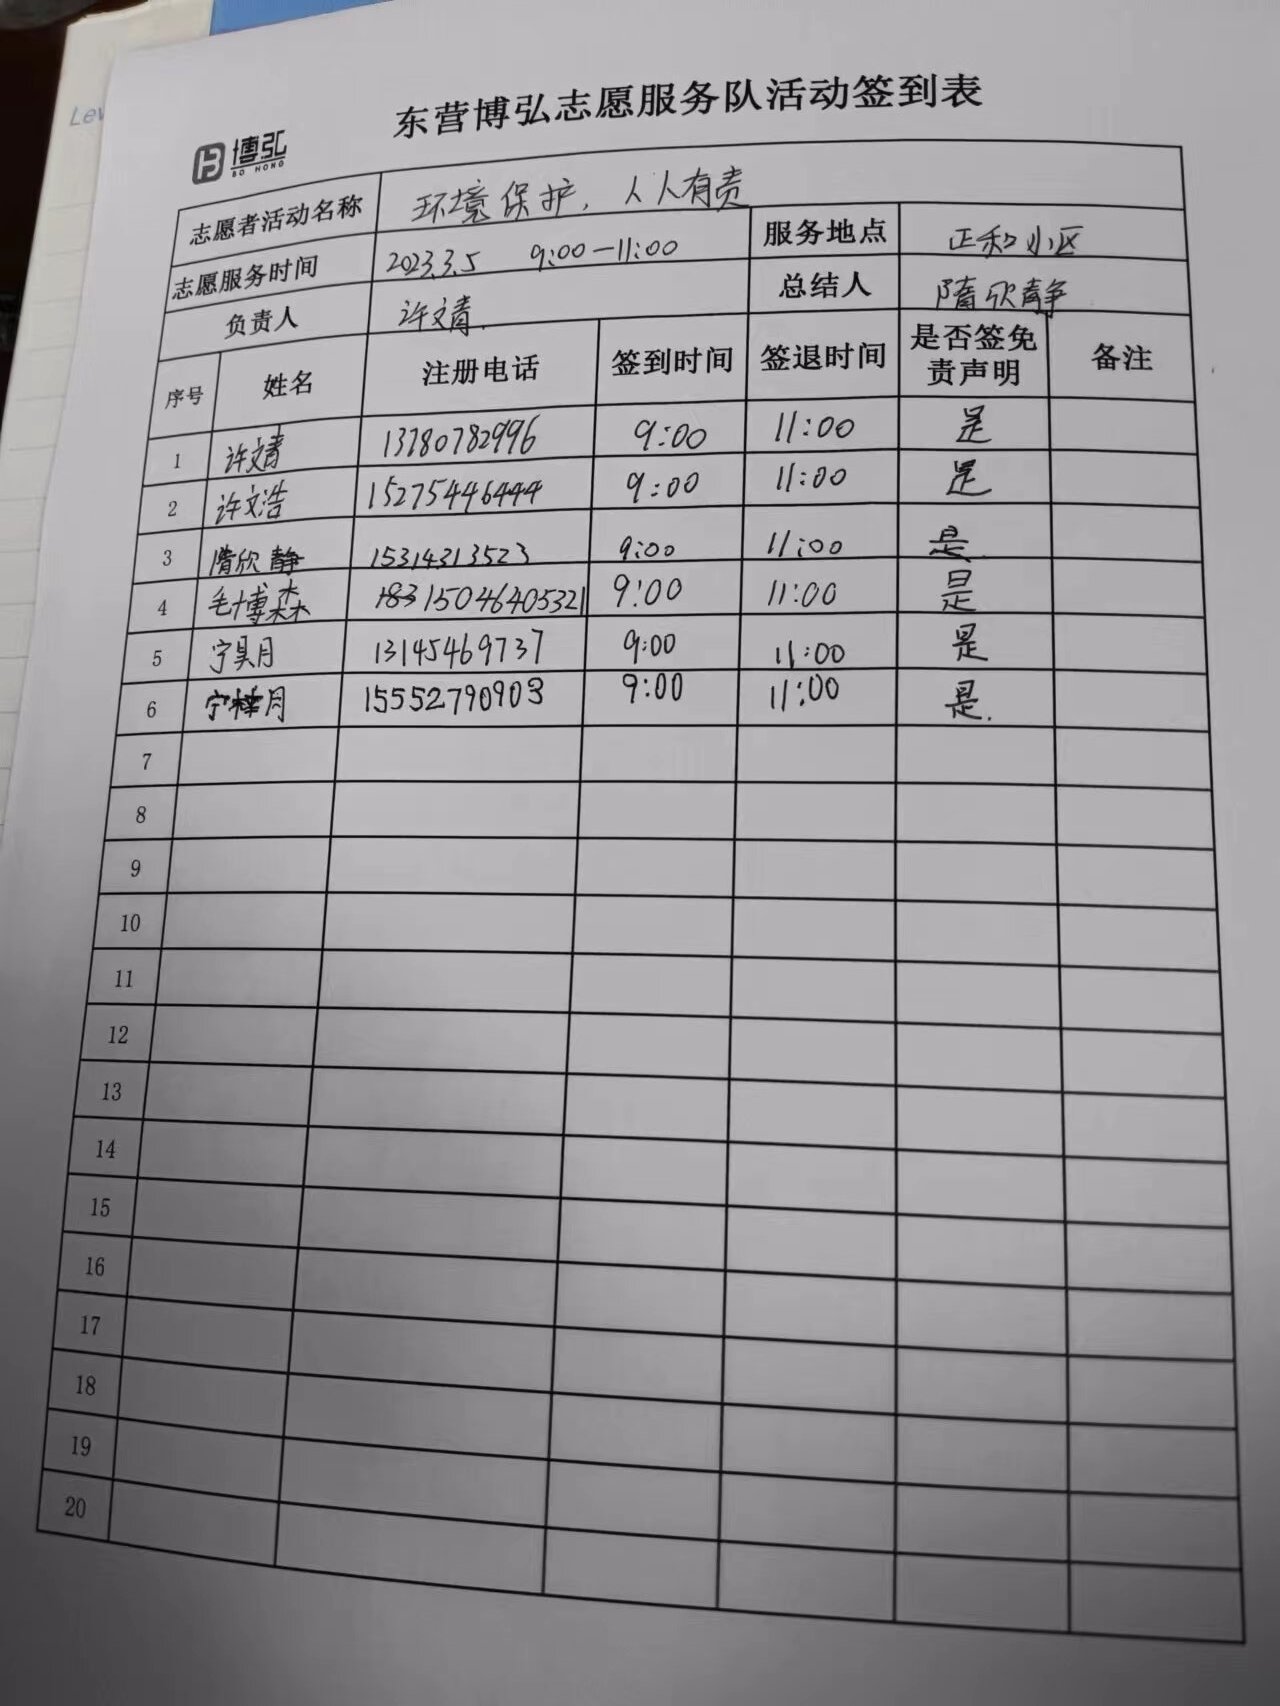 Lev
东营博弘志愿服务队活动签到表
博弘
BO HONG
志愿者活动名称 环境保护，人人有责
志愿服务时间 2023.3.5 9:00—11:00 服务地点 正和小区
负责人 许文青. 总结人 隋欣静
序号 姓名 注册电话 签到时间 签退时间 是否签免责声明 备注
1 许文青 13780782996 9:00 11:00 是
2 许文浩 15275446444 9:00 11:00 是
3 隋欣静 15314313523 9:00 11:00 是.
4 毛博森 15046405321 9:00 11:00 是
5 宁昊月 13145469737 9:00 11:00 是
6 宁月 15552790903 9:00 11:00 是.
7
8
9
10
11
12
13
14
15
16
17
18
19
20